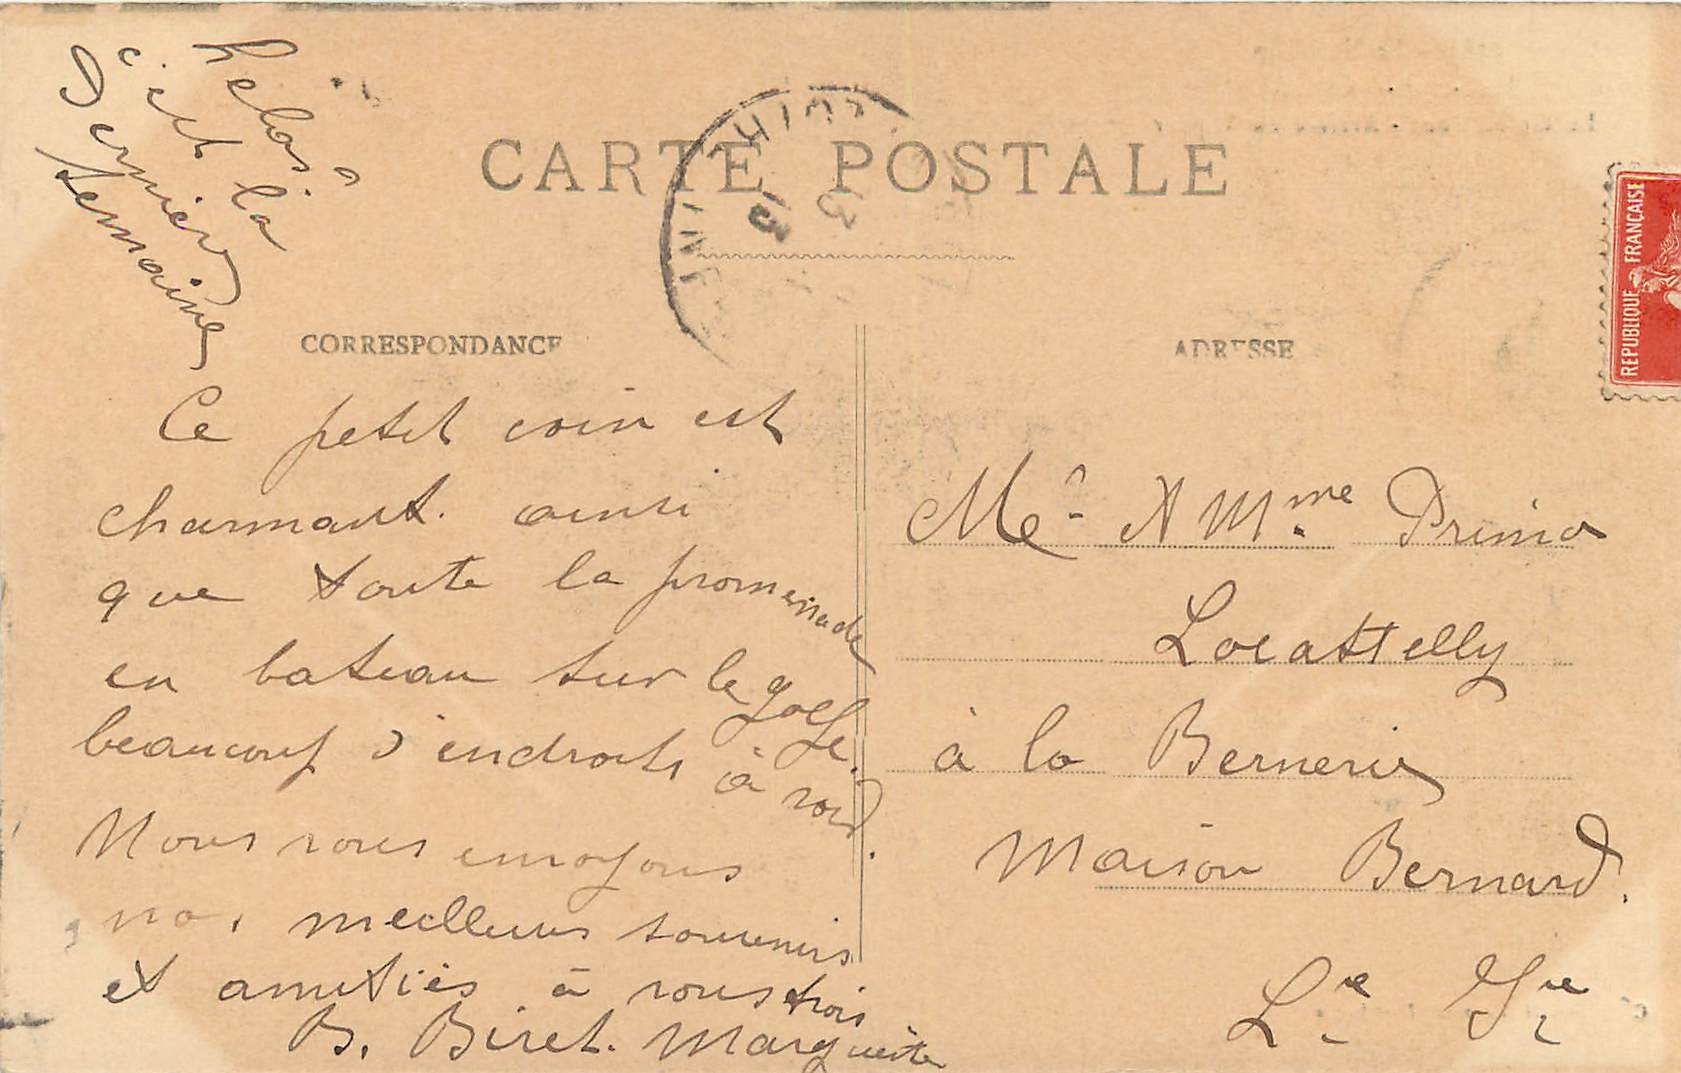 helas!
c'est la
Dernière
semaine
CARTE POSTALE
13
REPUBLIQUE FRANÇAISE
CORRESPONDANCE
ADRESSE
Ce petit coin est
charmant. ainsi
que toute la promenade
en bateau sur le golfe.
beaucoup d'endroits à voir.
Nous vous envoyons
nos meilleurs souvenirs
et amitiés à vous trois
B. Biret. Marguerite
Mr & Mme Primo
Locattelly
à la Bernerie
Maison Bernard.
Lre Ifre